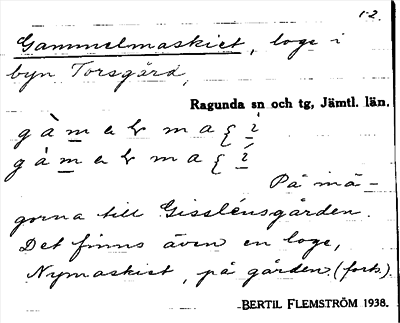 1-2.
Gammelmaskiet, loge i
byn Torsgård,
Ragunda sn och tg, Jämtl. län.
På mä-
gorna till Gissléusgården.
Det finns även en loge,
Nymaskiet, på gården (forts.).
BERTIL FLEMSTRÖM 1938.